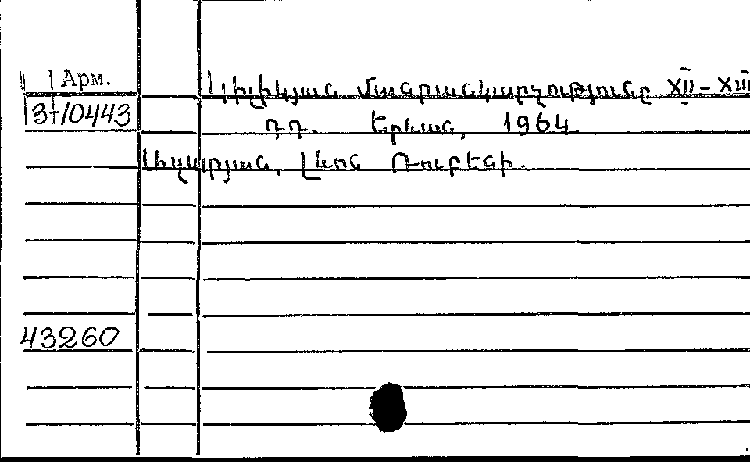 Арм.
Կիլիկյան մանրանկարչությունը XII - XIII
37/10443
դդ. Երևան, 1964
Ազարյան, Լևոն Ռուբենի.
43260